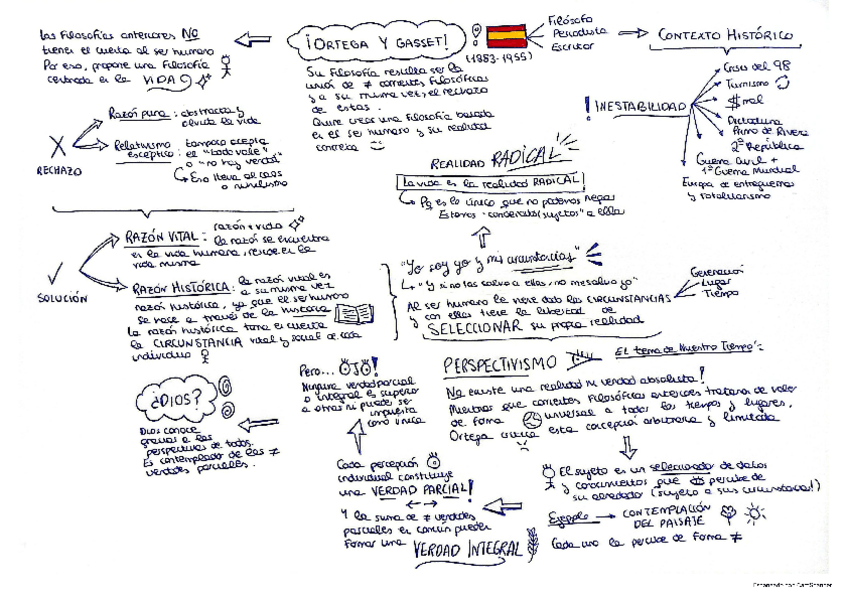 Las Filosofías anteriores NO
tienen el cuenta al ser humano
Por eso, propone una Filosofía
centrada en la VIDA
¡ORTEGA Y GASSET!
(1883-1955)
Filósofo
Periodista
Escritor
CONTEXTO HISTÓRICO
Su Filosofía resulta ser la
unión de ≠ corrientes filosóficas
y a su misma vez, el rechazo
de estas.
Quiere crear una filosofía basada
en el ser humano y su realidad
concreta
! INESTABILIDAD
Crisis del 98
Turnismo
$
Dictadura
Primo de Rivera
2ª República
Guerra Civil +
1ª Guerra Mundial
Europa de entreguerras
y totalitarismo
X
RECHAZO
Razón pura: abstracta y
olvida la vida
Relativismo
escéptico:
tampoco acepta
el "todo vale"
o "no hay verdad"
Eso lleva al caos
o nihilismo
REALIDAD RADICAL
La vida es la realidad RADICAL
Pq es lo único que no podemos negar
Estamos "condenados/sujetos" a ella
✓
SOLUCIÓN
razón + vida
RAZÓN VITAL: la razón se encuentra
en la vida humana, reside en la
vida misma
RAZÓN HISTÓRICA: la razón vital es
a su misma vez
razón histórica, ya que el ser humano
se hace a través de la historia
La razón histórica tiene el cuenta
la CIRCUNSTANCIA vital y social de cada
individuo
"Yo soy yo y mis circunstancias"
"Y si no las salvo a ellas, no me salvo yo"
Al ser humano le viene dado las CIRCUNSTANCIAS
y con ellas tiene la libertad de
SELECCIONAR su propia realidad
Generación
Lugar
Tiempo
PERSPECTIVISMO
"El tema de Nuestro Tiempo":
No existe una realidad ni verdad absoluta!
Mientras que corrientes filosóficas anteriores trataron de valor
de forma universal a todos los tiempos y lugares,
Ortega critica esta concepción arbitraria y limitada
El sujeto es un seleccionador de datos
y conocimientos que percibe de
su alrededor (sujeto a sus circunstancias!)
Ejemplo → CONTEMPLACIÓN
DEL PAISAJE
Cada uno la percibe de forma ≠
Cada percepción
individual constituye
una VERDAD PARCIAL!
Y la suma de ≠ verdades
parciales en común pueden
formar una
VERDAD INTEGRAL
Pero... OJO!
Ninguna verdad parcial
o integral es superior
a otras ni puede ser
impuesta
como única
¿DIOS?
Dios conoce
gracias a las
perspectivas de todos.
Es contemplador de las ≠
verdades parciales.
Escaneado con CamScanner